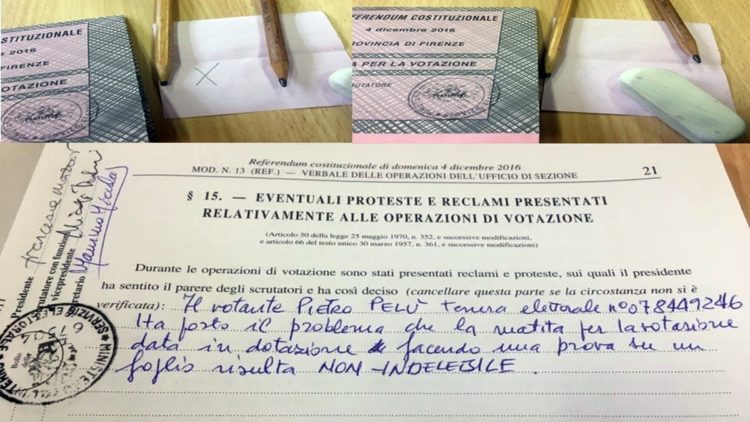 FERENDUM COSTITUZIONALE
4 dicembre 2016
DI FIRENZE
VOTAZIONE
REFERENDUM COSTITUZIONALE
4 dicembre 2016
PROVINCIA DI FIRENZE
A PER LA VOTAZIONE
UTATORE
Referendum costituzionale di domenica 4 dicembre 2016
MOD. N. 13 (REF.) — VERBALE DELLE OPERAZIONI DELL'UFFICIO DI SEZIONE
21
§ 15. — EVENTUALI PROTESTE E RECLAMI PRESENTATI
RELATIVAMENTE ALLE OPERAZIONI DI VOTAZIONE
(Articolo 50 della legge 25 maggio 1970, n. 352, e successive modificazioni,
e articolo 66 del testo unico 30 marzo 1957, n. 361, e successive modificazioni)
Durante le operazioni di votazione sono stati presentati reclami e proteste, sui quali il presidente
ha sentito il parere degli scrutatori e ha così deciso (cancellare questa parte se la circostanza non si è
verificata): Il votante PIETRO PELU' Tessera elettorale n° 078449246
Ha posto il problema che la matita per la votazione
data in dotazione facendo una prova su un
foglio risulta NON INDELEBILE.
Presidente
Scrutatore con funzioni
vicepresidente
Segretario
Bollo